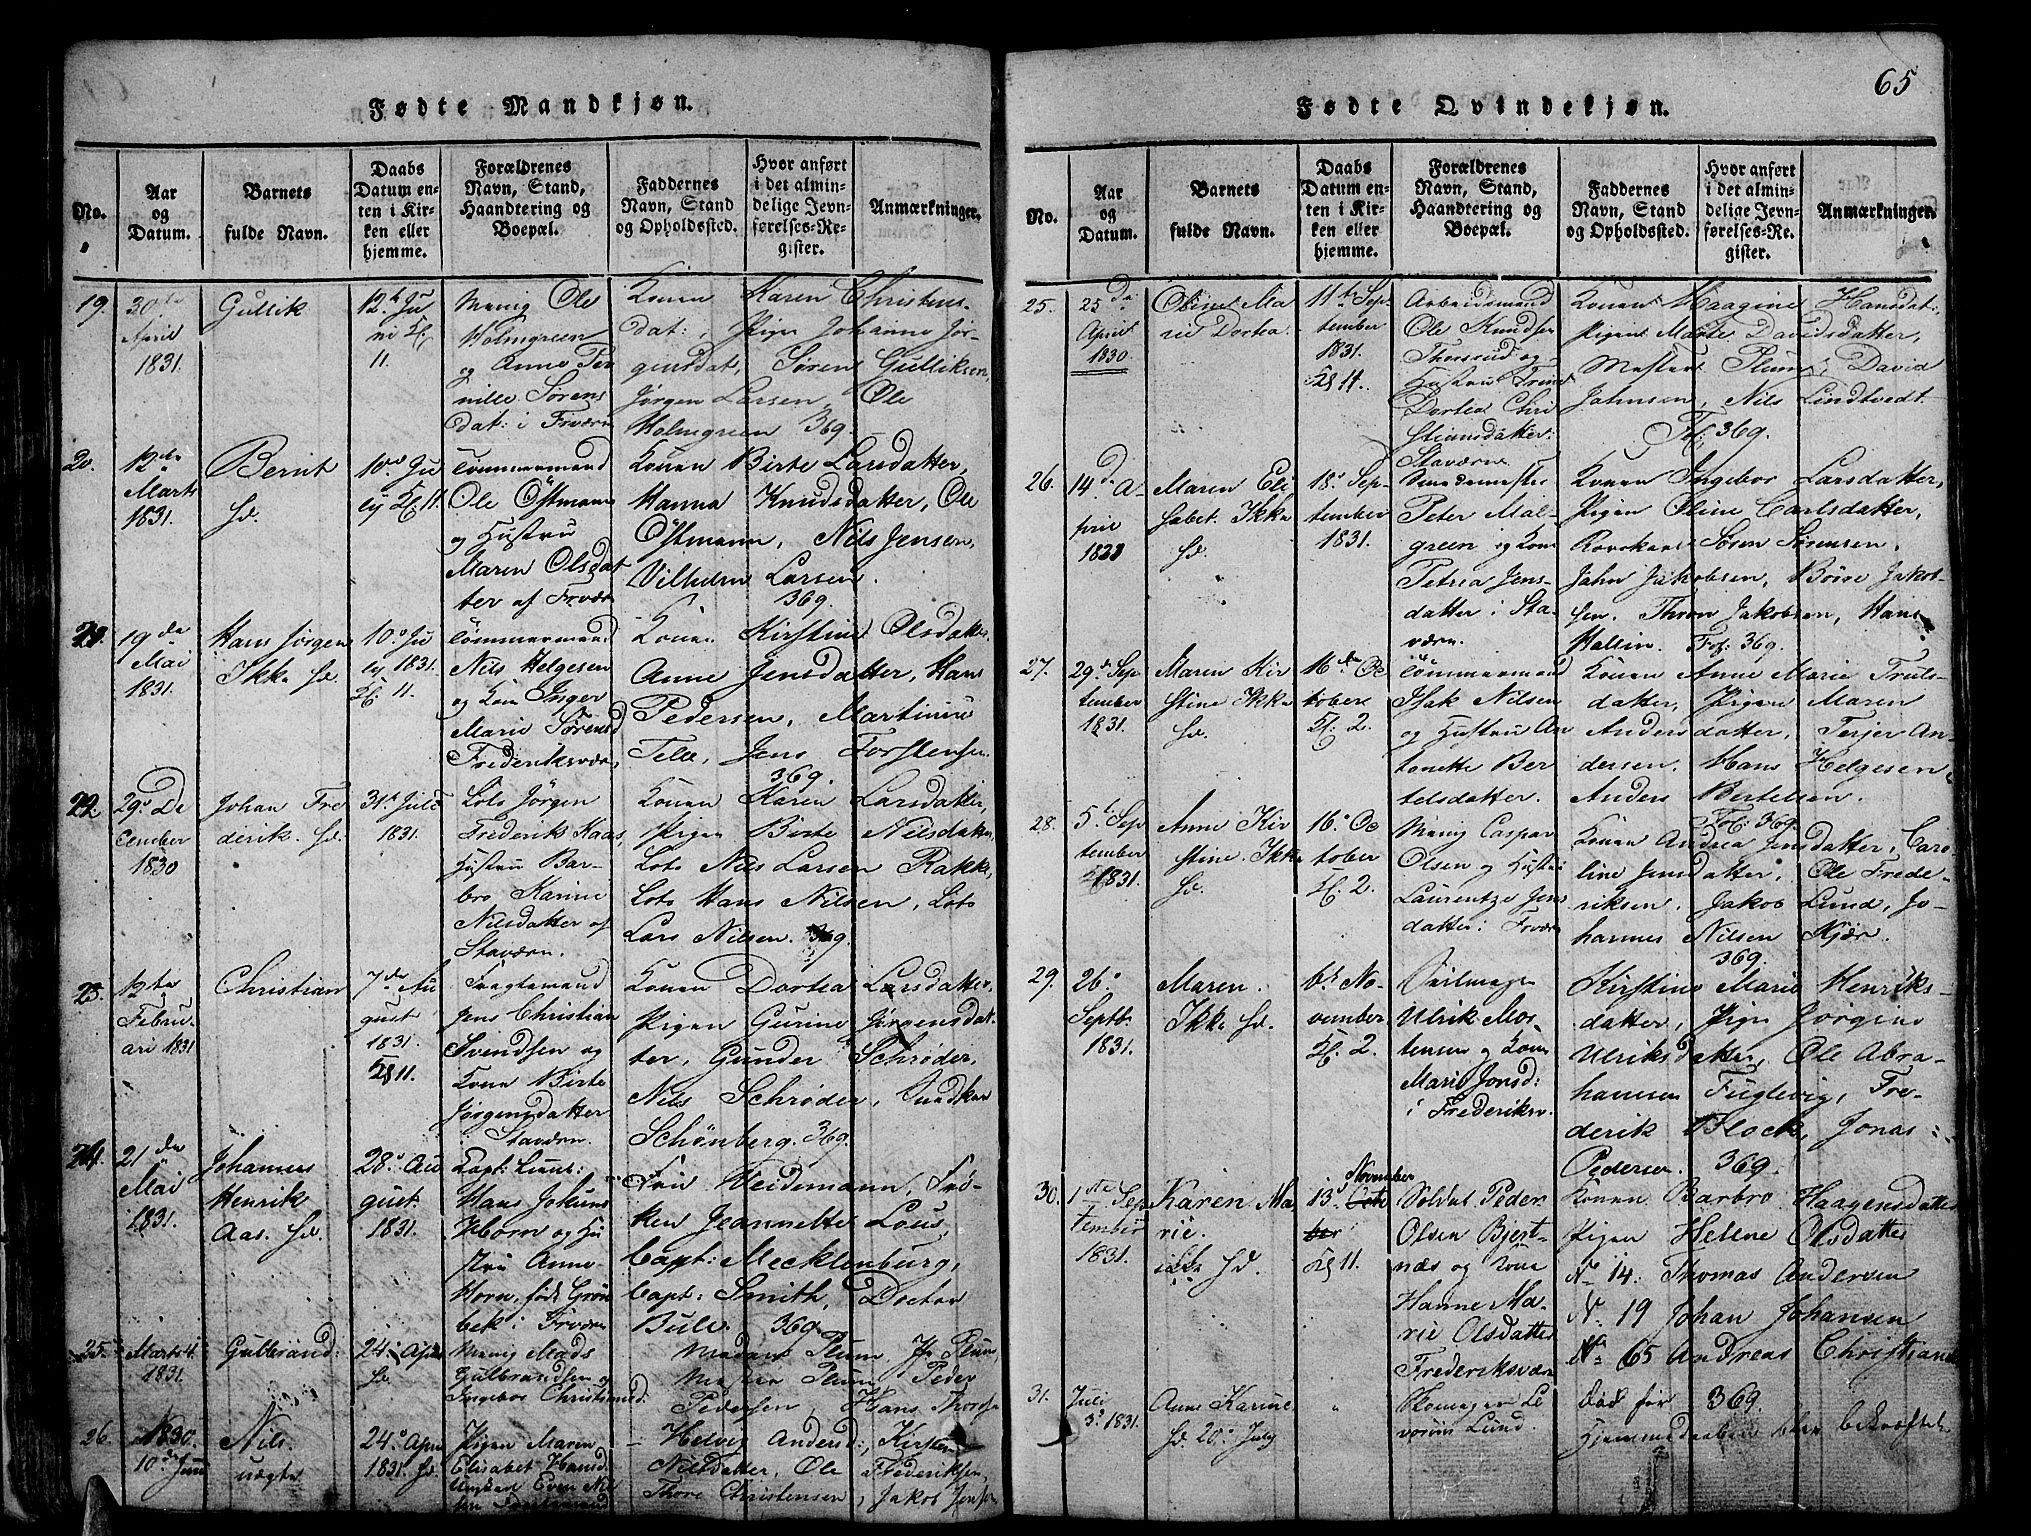 65
Fødte Mandkjøn.
No.
Aar
og
Datum.
Barnets
fulde Navn.
Daabs
Datum en-
ten i Kir-
ken eller
hjemme.
Forældrenes
Navn, Stand,
Haandtering og
Boepæl.
Faddernes
Navn, Stand
og Opholdssted.
Hvor anført
i det almin-
delige Jevn-
førelses-Re-
gister.
Anmærkninger.
19.
30te
April
1831.
Gullik
12te Ju
ni Kl.
11.
Menig Ole
Holmgreen
og Anne Per
nille Sørens
dat: i Frværn
Konen Karen Christens
dat:, Pigen Johanne Jør-
gensdat, Søren Gulliksen,
Jørgen Larsen, Ole
Holmgreen 369.
20.
12te
Marts
1831.
Bernt
hd.
10de Ju
ly Kl. 11.
Tömmermand
Ole Östmann
og Hustru
Maren Olsdat
ter af Frværn
Konen Birte Larsdatter,
Hanna Knudsdatter, Ole
Östmann, Nils Jensen,
Vilhelm Larsen.
369.
21.
19de
Mai
1831.
Hans Jørgen
Ikke hd.
10de Ju
ly 1831.
Kl. 11.
Tömmermand
Nils Helgesen
og Kone Inger
Marie Sørensd
Frederiksværn
Konen Kirstine Olsdatter
Anne Jensdatter, Hans
Pedersen, Martinus
Telle, Jens Torstensen.
369.
22.
29de De
cember
1830
Johan Fre
derik. hd.
31te Juli
1831.
Lots Jørgen
Frederik Kaas,
Hustru Bar-
bro Karine
Nilsdatter af
Staværn.
Konen Karen Larsdatter,
Pigen Birte Nilsdatter
Lots Nils Larsen Rakke,
Lots Hans Nilsen, Lots
Lars Nilsen. 369.
23.
12te
Febru-
ari 1831
Christian
7de Au
gust
1831.
Kl 11.
Fragtemand
Jens Christian
Svendsen og
Konen Birte
Jørgensdatter
i Staværn.
Konen Dortea Larsdatter,
Pigen Gurine Jørgensdat-
ter, Gunder Schrøder,
Nils Schrøder,
Schønberg. 369.
24.
21de
Mai
1831.
Johannes
Henrik
Aas. hd.
28de Au
gust
1831.
Capt: Lieut:
Hans Jokum
Horn og Hu
stru Anne
Horn, født Grøn
bek i Frværn
Fru Weidemann, Frø-
ken Jeannette Lous,
Capt: Mecklenburg,
Capt: Smith, Doctor
Bull. 369.
25.
Marts 4.
1831.
Gulbrand:
24 April
hd.
Menig Mads
Gulbrandsen og
Ingebor Christensd.
Madam Plum Jfr Plum,
Mester Plum Peder
Pedersen, Hans Thorsen
26.
1830.
10de Juni
Nils
uægte
24de April
1831. hd.
Pigen Maren
Elisabet Hansd.
Ungkarl Even Nil
sen
Helvig Andersd:, Kirsten
Nilsdatter, Ole Frederiksen,
Thore Christensen, Jakob Jensen
Fødte Qvindekjøn.
No.
Aar
og
Datum.
Barnets
fulde Navn.
Daabs
Datum en-
ten i Kir-
ken eller
hjemme.
Forældrenes
Navn, Stand,
Haandtering og
Boepæl.
Faddernes
Navn, Stand
og Opholdssted.
Hvor anført
i det almin-
delige Jevn-
førelses-Re-
gister.
Anmærkninger.
25.
25de
April
1830.
Oline Ma
rie Dortea.
11te Sep-
tember
1831.
Kl 11.
Arbeidsmand
Ole Knudsen
Thorsrud og
Hustru Trine
Dortea Chri
stiansdatter.
Staværn
Konen Haagine Hansdat:
Pigen Marte Davidsdatter,
Mester Plum, David
Johnsen, Nils Lindtvedt.
Fol: 369.
26.
14de A-
pril
Maren Eli
sabet. Ikke
hd.
18de Sep-
tember
1831.
Peter Mal-
green og Kone
Petrea Jens-
datter i Sta-
værn.
Konen Ingebor Larsdatter,
Pigen Oline Carlsdatter,
Søren Sørensen.
John Jakobsen, Børe Jakob-
sen, Thron Jakobsen, Hans
Hallin. Fol: 369.
27.
29de Sep
tember
1831.
Maren Kir
stine Ikke
hd.
16de Oc
tober
Kl. 2.
Tömmermand
Isak Nilsen
og Hustru An
tonette Ber
telsdatter.
Konen Anne Marie Truls-
datter, Pigen Maren
Andersdatter, Terjer An-
dersen. Hans Helgesen
Anders Bertelsen.
Fol: 369.
28.
5te Sep
tember
1831.
Anne Kir
stine. Ikke
hd.
16de Oc
tober
Kl. 2.
Menig Caspar
Olsen og Hustru
Laurentze Jens
datter i Frværn
Konen Andrea Jensdatter, Caro-
line Jensdatter, Ole Frede-
riksen. Jakob Lund, Jo-
hannes Nilsen Kjær.
369.
29.
26de
Septb.
1831.
Maren.
Ikke hd.
6te No-
vember
Kl. 2.
Seilmager
Ulrik Mor-
tensen og Kone
Marie Jonsd:
i Frederiksv.
Kirstine Marie Henriks-
datter, Pigen Jørgine
Ulriksdatter, Ole Abra-
hamsen Fuglevig, Fre-
derik Block, Jonas
Pedersen. 369.
30.
1ste Sep
tember
1831.
Karen Ma
rie.
ikke hd.
November
13de Octo
ber
Kl 11.
Soldat Peder
Olsen Bjert-
næs og Kone
Hanne Ma-
rie Olsdatter
Frederiksværn
Konen Barbro Haagensdatter
Pigen Helene Olsdatter
No 14. Thomas Andersen
No 19 Johan Johansen
No 65 Andreas Christians
31.
Juli
3de 1831.
Anne Karine
hd. 20de July
"
Skomager Le
vorin Lund.
død før 369.
Hjemmedaaben blev bekræftet